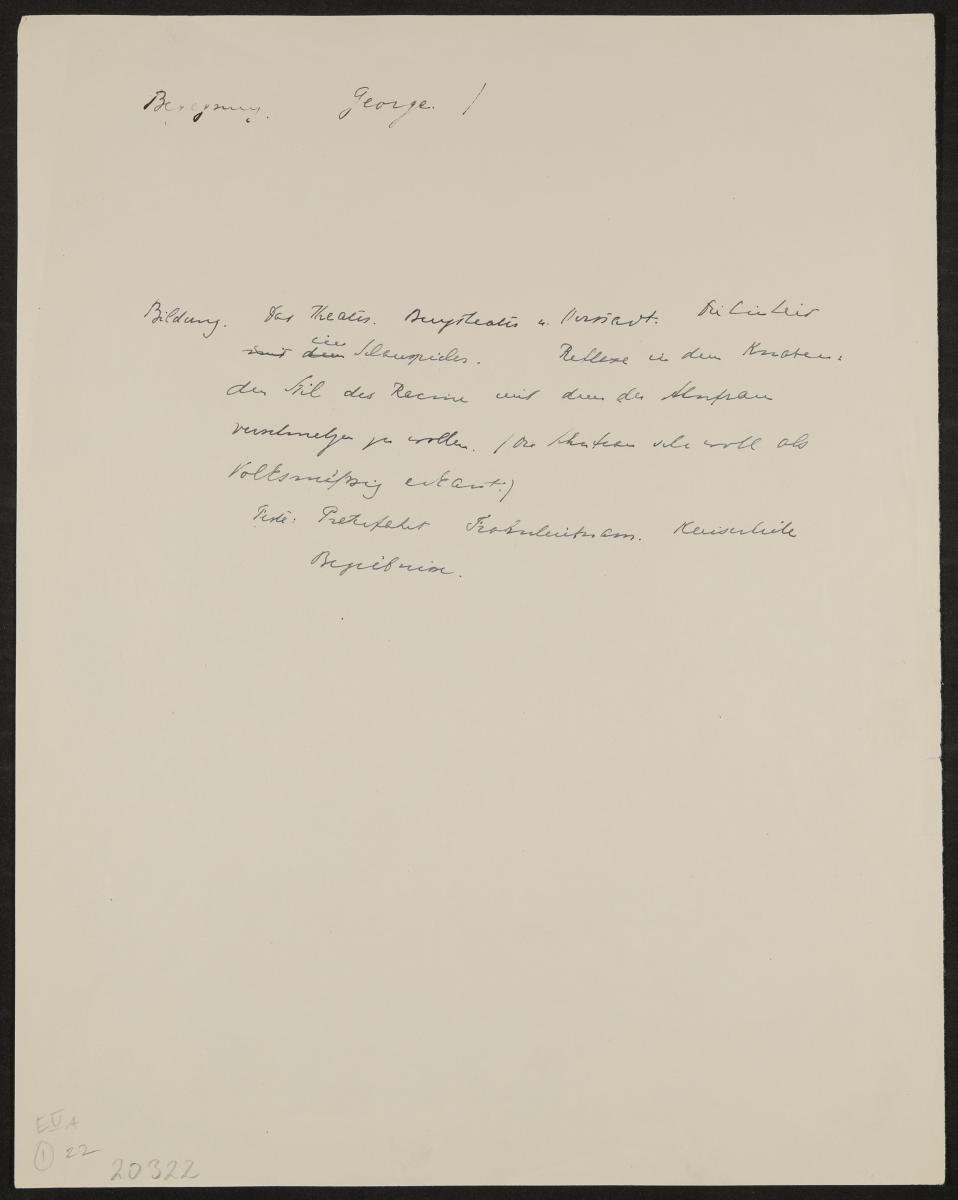 Begegnung. George. /
Bildung. Das Theater. Burgtheater u. Vorstadt. Die Einheit
mit dem im Schauspieler. Reflexe in dem Knaben:
den Stil des Racine mit dem der Ahnfrau
verschmelzen zu wollen. (Die Ahnfrau sehr wohl als
Volksmäßig erkannt.)
Feste: Praterfahrt Frohnleichnam. Kaiserliche
Begräbnisse.
E V A
1 22
20322